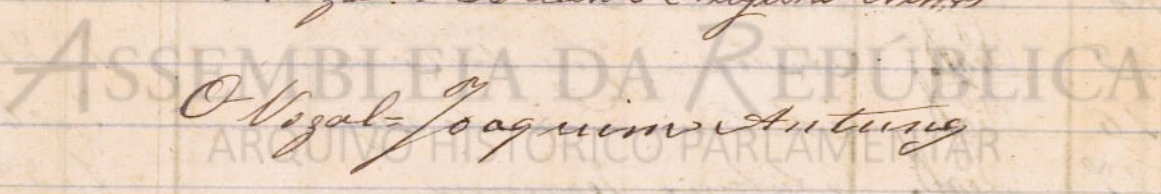 ASSEMBLEIA DA REPÚBLICA
O Vogal = Joaquim Antunes
ARQUIVO HISTÓRICO PARLAMENTAR